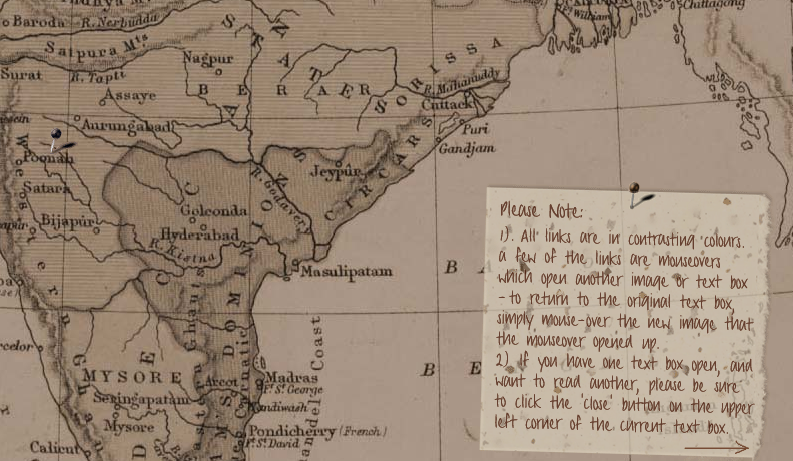 Baroda
R. Nerbudda
William
Chittagong
Satpura Mts
Nagpur
Surat
R. Tapti
ORISSA
Assaye
BERAR
R. Mahanuddy
Cuttack
Aurungabad
Puri
Gandjam
Poonah
Jeypûr
CIRCARS
Satara
R. Godavery
Golconda
Bijapûr
Hyderabad
R. Kistna
Masulipatam
B
B E
MYSORE
Arcot
Madras
F. St. George
Seringapatam
Wandiwash
Mysore
Pondicherry (French)
F. St. David
Calicut
Coast
Please Note:
1). All links are in contrasting colours.
a few of the links are mouseovers
which open another image or text box
- to return to the original text box,
simply mouse-over the new image that
the mouseover opened up.
2) If you have one text box open, and
want to read another, please be sure
to click the 'close' button on the upper
left corner of the current text box.